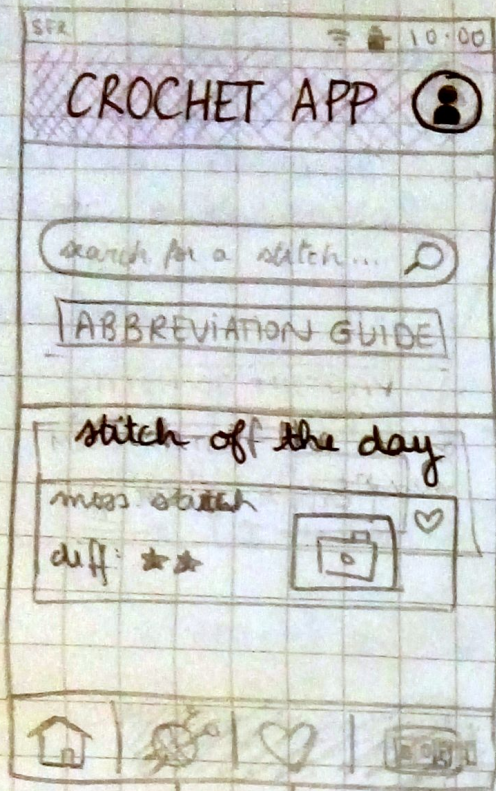 SFR 10:00
CROCHET APP
search for a stitch...
ABBREVIATION GUIDE
stitch off the day
moss stitch
diff: ★★